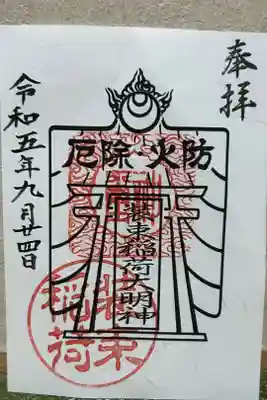 奉拝
厄除火防
装束稲荷大明神
装束稲荷
令和五年九月廿四日